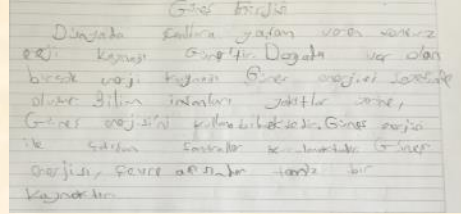 Güneş Enerjisi
Dünyada canlıra yaşam veren sonsuz
enerji kaynağı Güneş'tir. Doğada var olan
birçok enerji kaynağı Güneş enerjisi sayesinde
oluşur. Bilim insanları yakıtlar yerine,
Güneş enerjisini Güneş enerjisi
ile çalışan Santraller Güneş
enerjisi, çevre açısından temiz bir
kaynaktır.